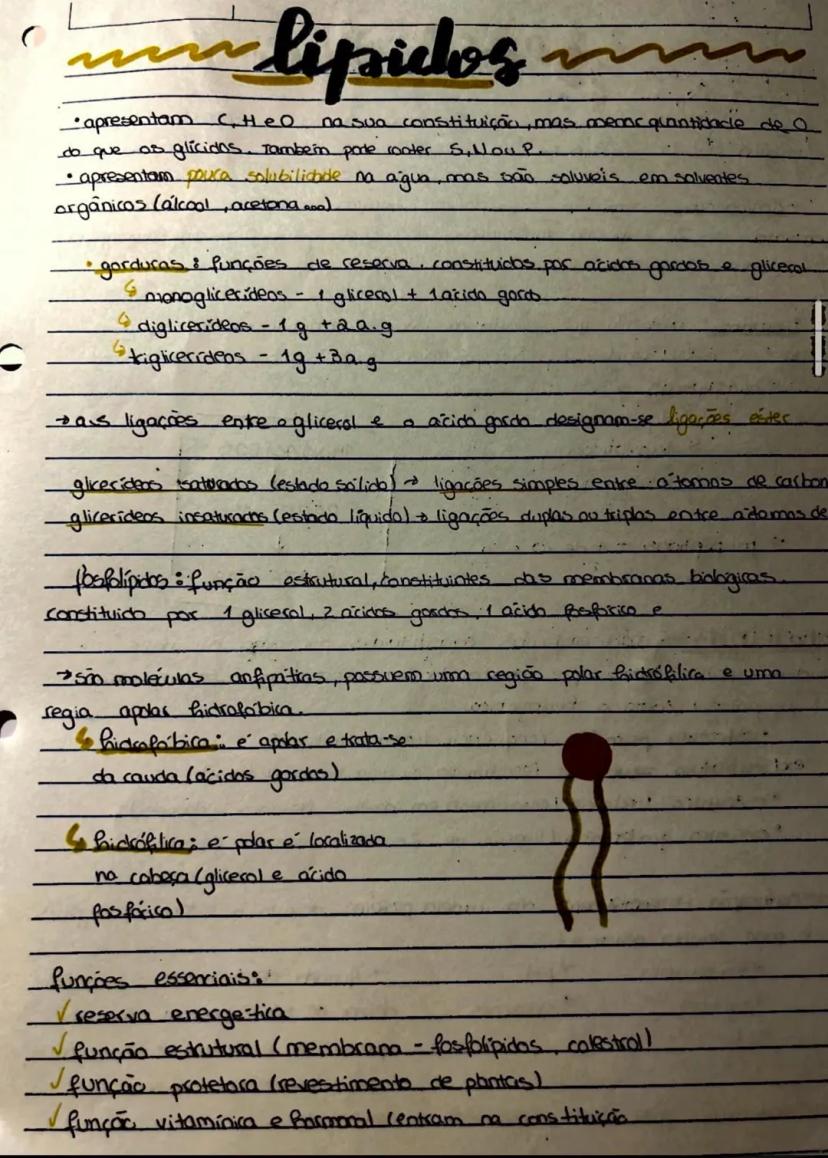 lipidos
• apresentam C, H e O na sua constituição, mas menor quantidade de O
do que os glícidos. Também pode conter S, N ou P.
• apresentam pouca solubilidade na água, mas são soluveis em solventes
orgânicos (álcool, acetona...)
• gorduras: funções de reserva. constituidos por ácidos gordos e glicerol
↳ monoglicerídeos - 1 glicerol + 1 ácido gordo
↳ diglicerídeos - 1 g + 2 a.g
↳ triglicerídeos - 1g + 3a.g
→ as ligações entre o glicerol e o ácido gordo designam-se ligações éster
glicerídeos saturados (estado sólido) → ligações simples entre átomos de carbon
glicerídeos insaturados (estado líquido) → ligações duplas ou triplas entre átomos de
fosfolípidos: função estrutural, constituintes das membranas biológicas.
constituido por 1 glicerol, 2 ácidos gordos, 1 ácido fosfórico e
→ são moléculas anfipáticas, possuem uma região polar hidrófilica e uma
regia apolar hidrofóbica.
↳ hidrofóbica: é apolar e trata-se
da cauda (ácidos gordos)
↳ hidrófilica: é polar é localizada
na cabeça (glicerol e ácido
fosfórico)
funções essenciais:
✓ reserva energética
✓ função estrutural (membrana - fosfolípidos, colestrol)
✓ função protetora (revestimento de plantas)
✓ função vitamínica e hormonal (entram na constituição